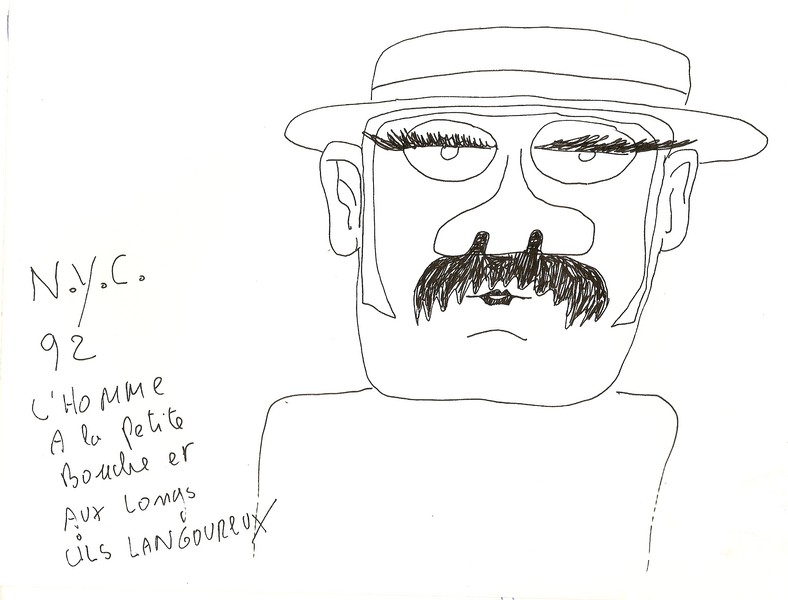 N.Y.C.
92
L'HOMME
A la petite
Bouche et
AUX LONGS
CILS LANGOUREUX